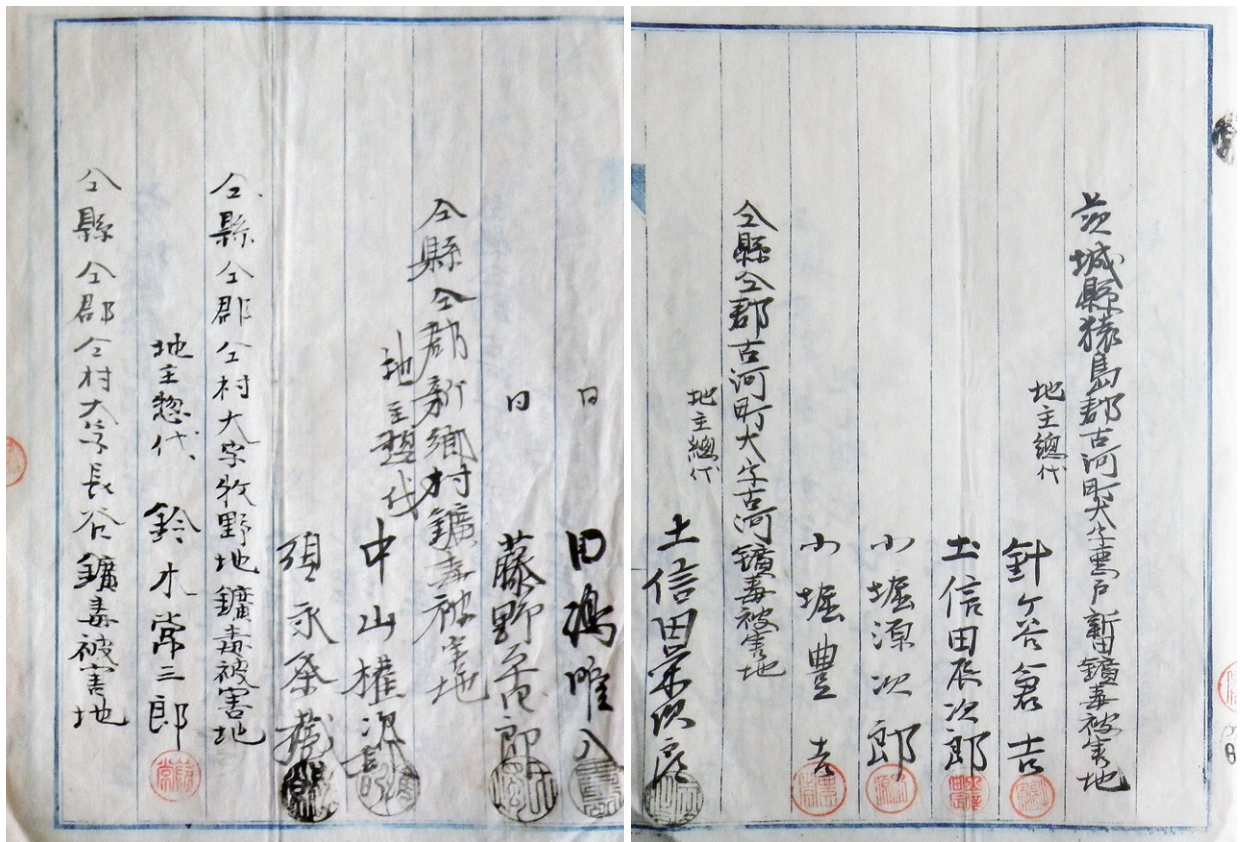 茨城縣猿島郡古河町大字悪戸新田鑛毒被害地
地主總代
針ヶ谷倉吉
土信田辰次郎
小堀源次郎
小堀豊吉
仝縣仝郡古河町大字古河鑛毒被害地
地主總代
土信田
日
田嶋唯八
日
藤野
仝縣仝郡新郷村鑛毒被害地
地主惣代
中山權次
須永
仝縣仝郡仝村大字牧野地鑛毒被害地
地主惣代
鈴木常三郎
仝縣仝郡仝村大字長谷鑛毒被害地